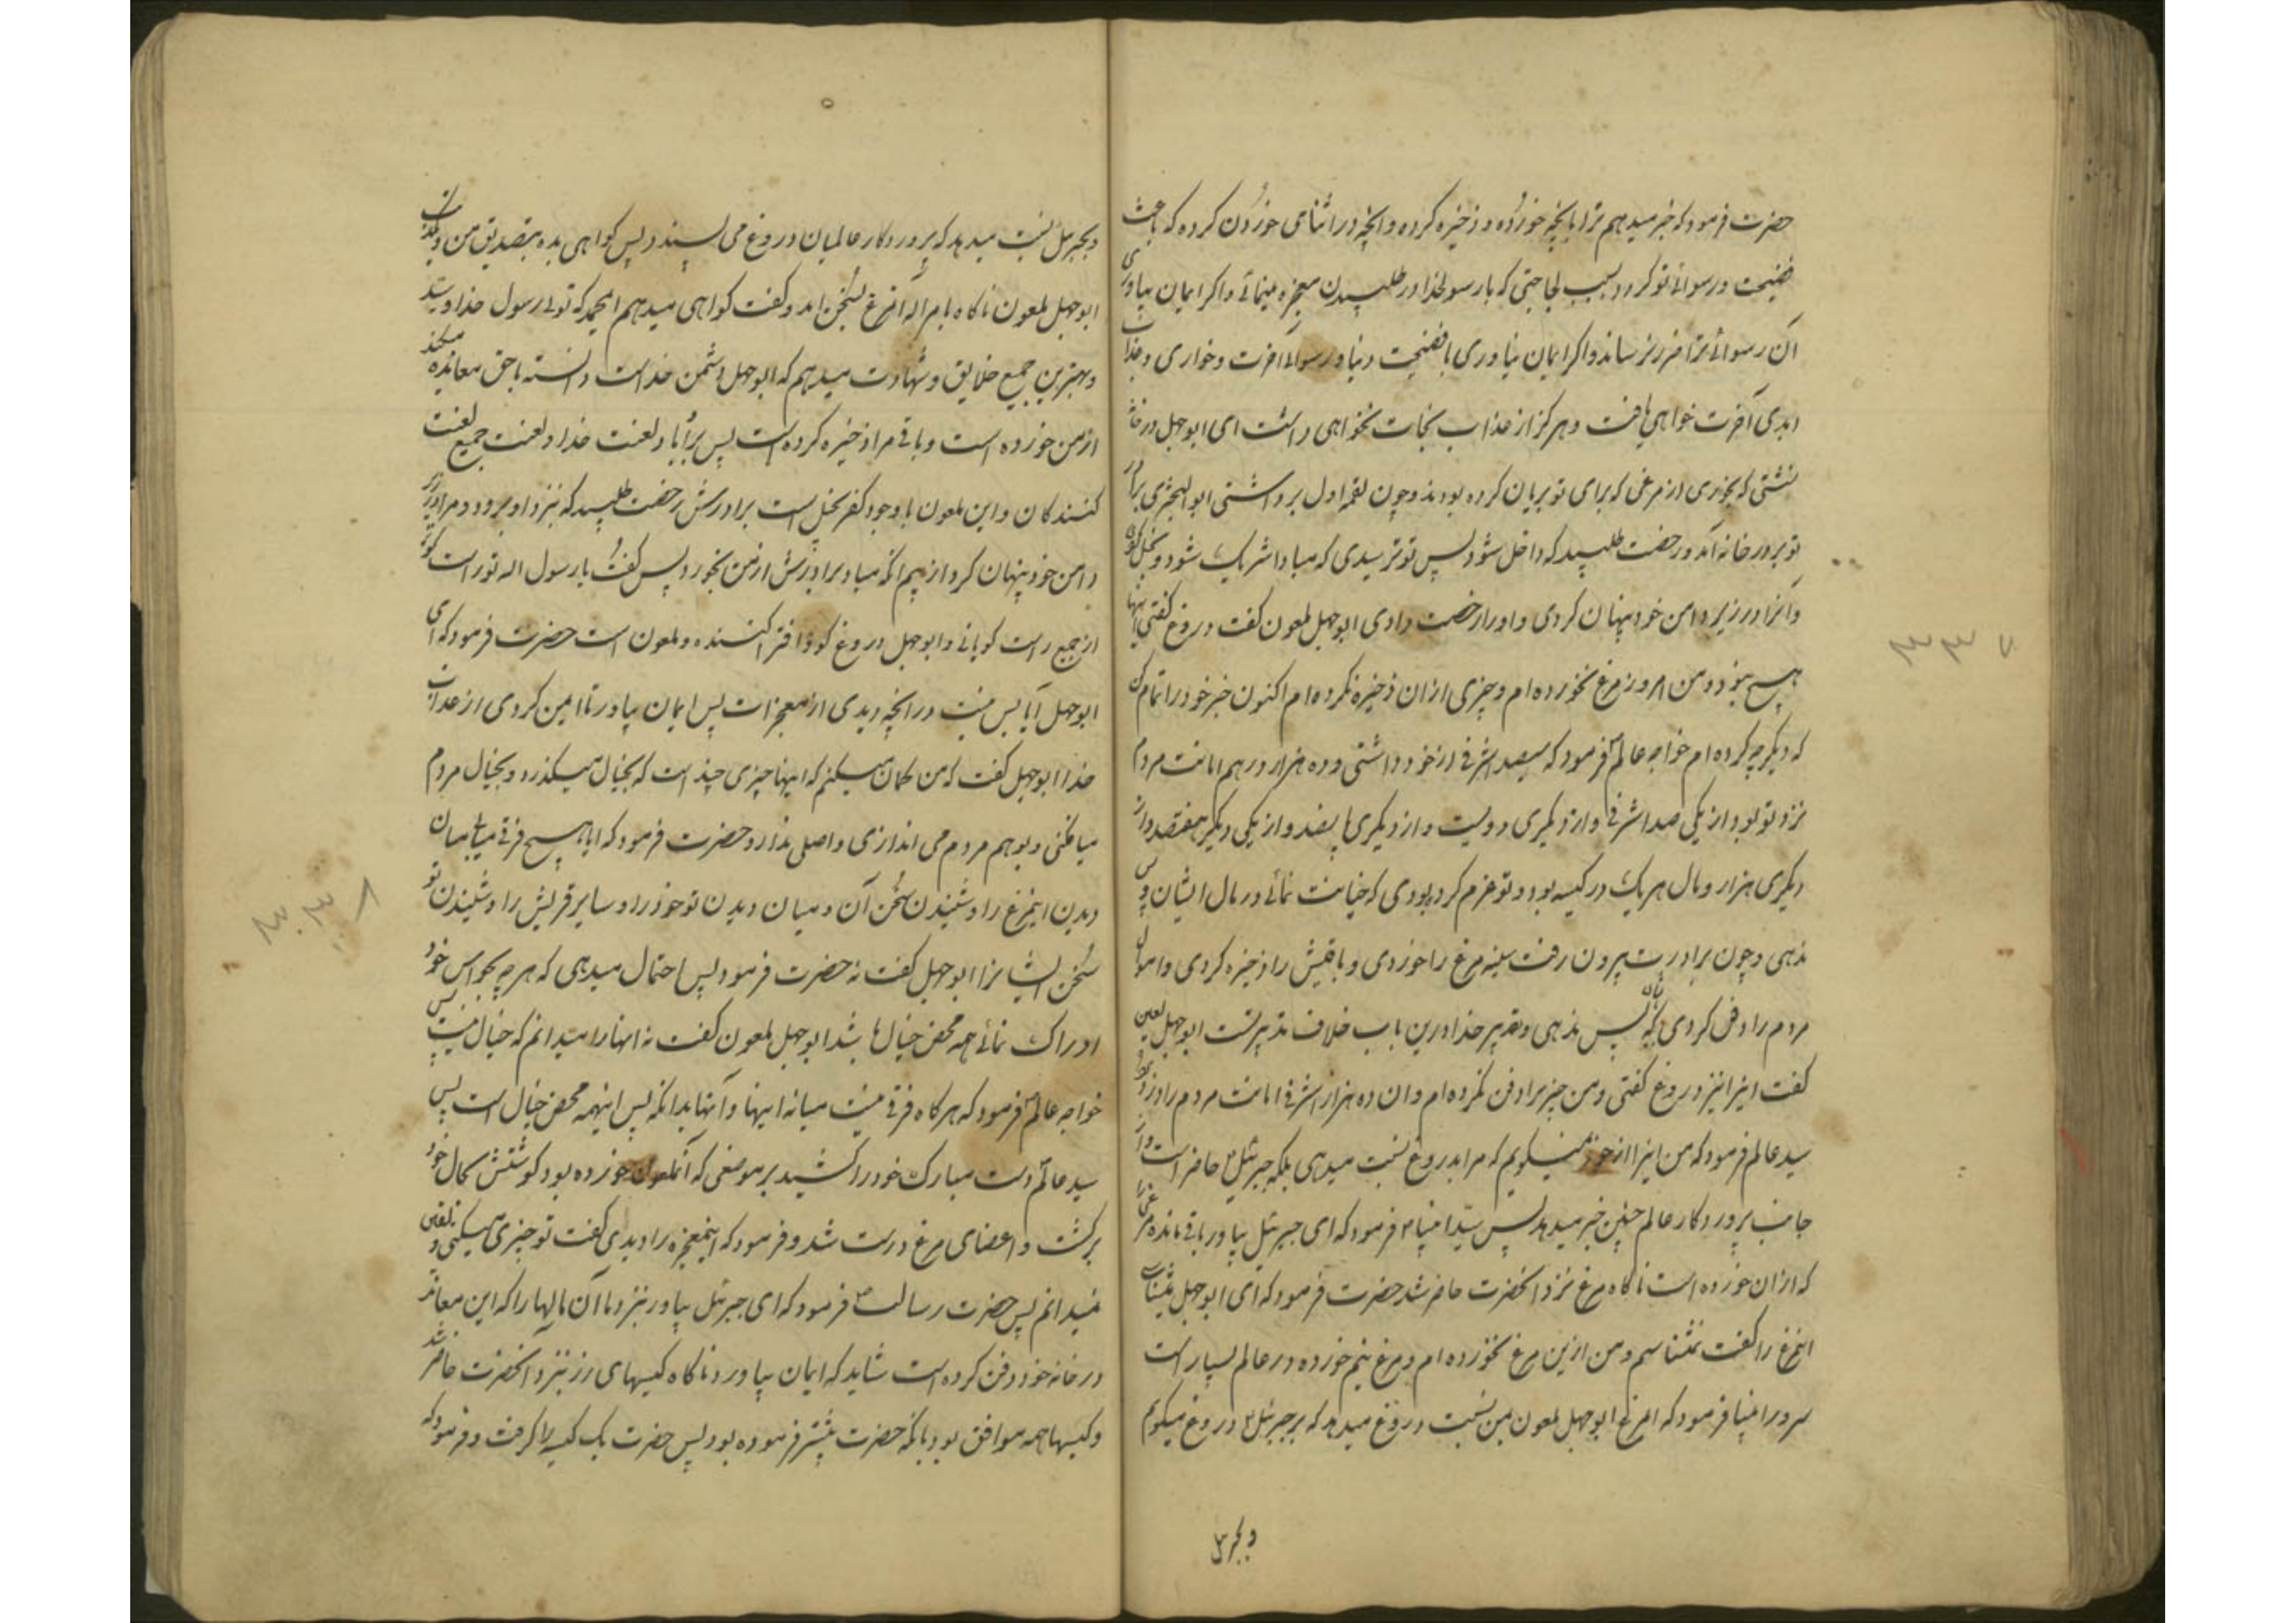 حضرت فرمود که خبر میدهم ترا بانچه خورده و ذخیره کرده و انچه در اثنای خوردن کرده که باعث
فضیحت و رسوائی تو کردد بسبب لجاجتی که با رسولخدا در طلبیدن معجزه مینمائی و اکر ایمان بیاوری
آن رسوائی ترا ضرر نرساند و اکر ایمان نیاوری با فضیحت دنیا و رسوائی آخرت و خواری و عذاب
ابدی آخرت خواهی یافت و هرکز از عذاب نجات نخواهی داشت ای ابوجهل در خانه
نشستی که بخوری از مرغی که برای تو بریان کرده بودند و چون لقمه اول برداشتی ابو البختری برادر
تو بدر خانه آمد و رخصت طلبید که داخل شود پس تو ترسیدی که مبادا شریک شود و بخل کردی
و آنرا در زیر دامن خود پنهان کردی و او را رخصت دادی ابوجهل لعون کفت دروغ کفتی اینها
هیچ نبود و من امروز مرغ نخورده ام و چیزی از ان ذخیره نکرده ام اکنون خبر خود را تمام کن
که دیکر چه کرده ام خواجه عالم فرمود که سیصد اشرفی از خود داشتی و ده هزار درهم امانت مردم
نزد تو بود از یکی صد اشرفی و از دیکری دویست و از دیکری پانصد و از یکی دیکر هفتصد و از
دیکری هزار و مال هر یک در کیسه بود و تو عزم کرده بودی که خیانت نمائی در مال ایشان و پس
ندهی و چون برادرت بیرون رفت سینه مرغ را خوردی و باقیش را ذخیره کردی و اموال
مردم را دفن کردی که پس ندهی و تقدیر خدا درین باب خلاف تدبیر تست ابوجهل لعین
کفت اینرا نیز دروغ کفتی و من چیزیرا دفن نکرده ام و ان ده هزار اشرفی امانت مردم را دزد
سید عالم فرمود که من اینرا از خود نمیکویم که مرا بدروغ نسبت میدهی بلکه جبرئیل حاضر است و از
جانب پروردکار عالم چنین خبر میدهد پس سید انبیا فرمود که ای جبرئیل بیاور باقی مانده مرغی را
که از ان خورده است ناکاه مرغ نزد انحضرت حاضر شد حضرت فرمود که ای ابوجهل میشناسی
اینمرغ را کفت نمیشناسم و من ازین مرغ نخورده ام و مرغ نیم خورده در عالم بسیار است
سرور انبیا فرمود که ایمرغ ابوجهل لعون بمن نسبت دروغ میدهد که بر جبرئیل دروغ میکویم
و بجبرئیل
و بجبرئیل نسبت میدهد که بر پروردکار عالمیان دروغ می بندد پس کواهی بده بتصدیق من و تکذیب
ابوجهل لعون ناکاه بامر اله آنمرغ بسخن امد و کفت کواهی میدهم ایمحمد که توئی رسول خدا و سید
و بهترین جمیع خلایق و شهادت میدهم که ابوجهل دشمن خداست دانسته با حق معانده میکند
از من خورده است و باقی مرا ذخیره کرده است پس بر او باد لعنت خدا و لعنت جمیع لعنت
کنندکان و این لعون با وجود کفر بخیل است برادرش رخصت طلبید که نیزد او برود و مرا در زیر
دامن خود پنهان کرد از بیم انکه مبادا برادرش از من بخورد پس کفت یا رسول اله تو راست کوتر
از جمیع راست کویانی و ابوجهل دروغ کو و افترا کننده و لعون است حضرت فرمود که ای
ابوجهل آیا بس نیست در انچه دیدی از معجزات پس ایمان بیاور تا ایمن کردی از عذاب
خدا ابوجهل کفت که من کمان میکنم که اینها چیزی چند است که بخیال میکذرد و بخیال مردم
میافکنی و بوهم مردم می اندازی و اصلی ندارد حضرت فرمود که ایا هیچ فرقی میابی میان
دیدن اینمرغ را و شنیدن سخن آن و میان دیدن تو خود را و سایر قریش را و شنیدن تو
سخن ایشانرا ابوجهل کفت نه حضرت فرمود پس احتمال میدهی که هر چه بحواس خود
ادراک نمائی همه محض خیال باشد ابوجهل لعون کفت نه انها را میدانم که خیال نیست پس
خواجه عالم فرمود که هر کاه فرقی نیست میانه اینها و آنها بدانکه پس اینهمه محض خیال است پس
سید عالم دست مبارک خود را کشید بر موضعی که آنلعون خورده بود کوشتش بحال خود
برکشت و اعضای مرغ درست شد و فرمود که اینمعجزه را دیدی کفت تو چیزی میکنی و یقین
نمیدانم پس حضرت رسالت فرمود که ای جبرئیل بیاور نزد ما آن مالها را که این معاند
در خانه خود دفن کرده است شاید که ایمان بیاورد ناکاه کیسهای زر نزد آنحضرت حاضر شد
و کیسها همه موافق بود بانکه حضرت پیشتر فرموده بود پس حضرت یک کیسه را کرفت و فرمود که
۳۳۷
۳۳۸